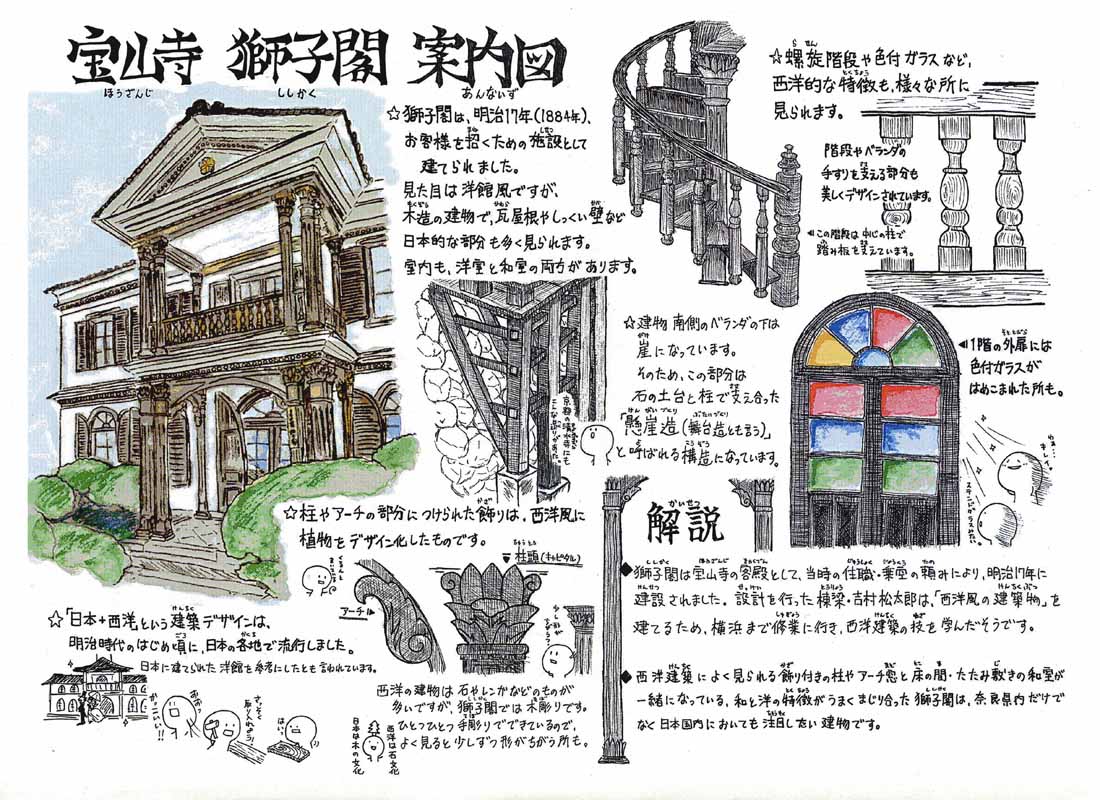 宝山寺 獅子閣 案内図
ほうざんじ ししかく あんないず
☆獅子閣は、明治17年(1884年)、
お客様を招くための施設として
建てられました。
見た目は洋館風ですが、
木造の建物で、瓦屋根やしっくい壁など
日本的な部分も多く見られます。
室内も、洋室と和室の両方があります。
☆螺旋階段や色付ガラスなど、
西洋的な特徴も、様々な所に
見られます。
階段やベランダの
手すりを支える部分も
美しくデザインされています。
◀この階段は中心の柱で
踏み板を支えています。
☆建物南側のベランダの下は
崖になっています。
そのため、この部分は
石の土台と柱で支え合った
「懸崖造(舞台造とも言う)」
と呼ばれる構造になっています。
京都の清水寺にも
◀1階の外扉には
色付ガラスが
はめこまれた所も。
☆柱やアーチの部分につけられた飾りは、西洋風に
植物をデザイン化したものです。
▼柱頭(キャピタル)
アーチ▶
西洋の建物は石やレンガなどのものが
多いですが、獅子閣では木彫りです。
ひとつひとつ手彫りでできているので、
よく見ると少しずつ形がちがう所も。
西洋は石文化
日本は木の文化
☆「日本+西洋」という建築デザインは、
明治時代のはじめ頃に、日本の各地で流行しました。
日本に建てられた洋館を参考にしたとも言われています。
かっこいい!!
さっそく
取り入れよう!
はいっ
解説
かいせつ
◆獅子閣は宝山寺の客殿として、当時の住職・乗空の頼みにより、明治17年に
建設されました。設計を行った棟梁・吉村松太郎は、「西洋風の建築物」を
建てるため、横浜まで修業に行き、西洋建築の技を学んだそうです。
◆西洋建築によく見られる飾り付きの柱やアーチ窓と床の間・たたみ敷きの和室が
一緒になっている、和と洋の特徴がうまくまじり合った獅子閣は、奈良県内だけで
なく日本国内においても注目したい建物です。